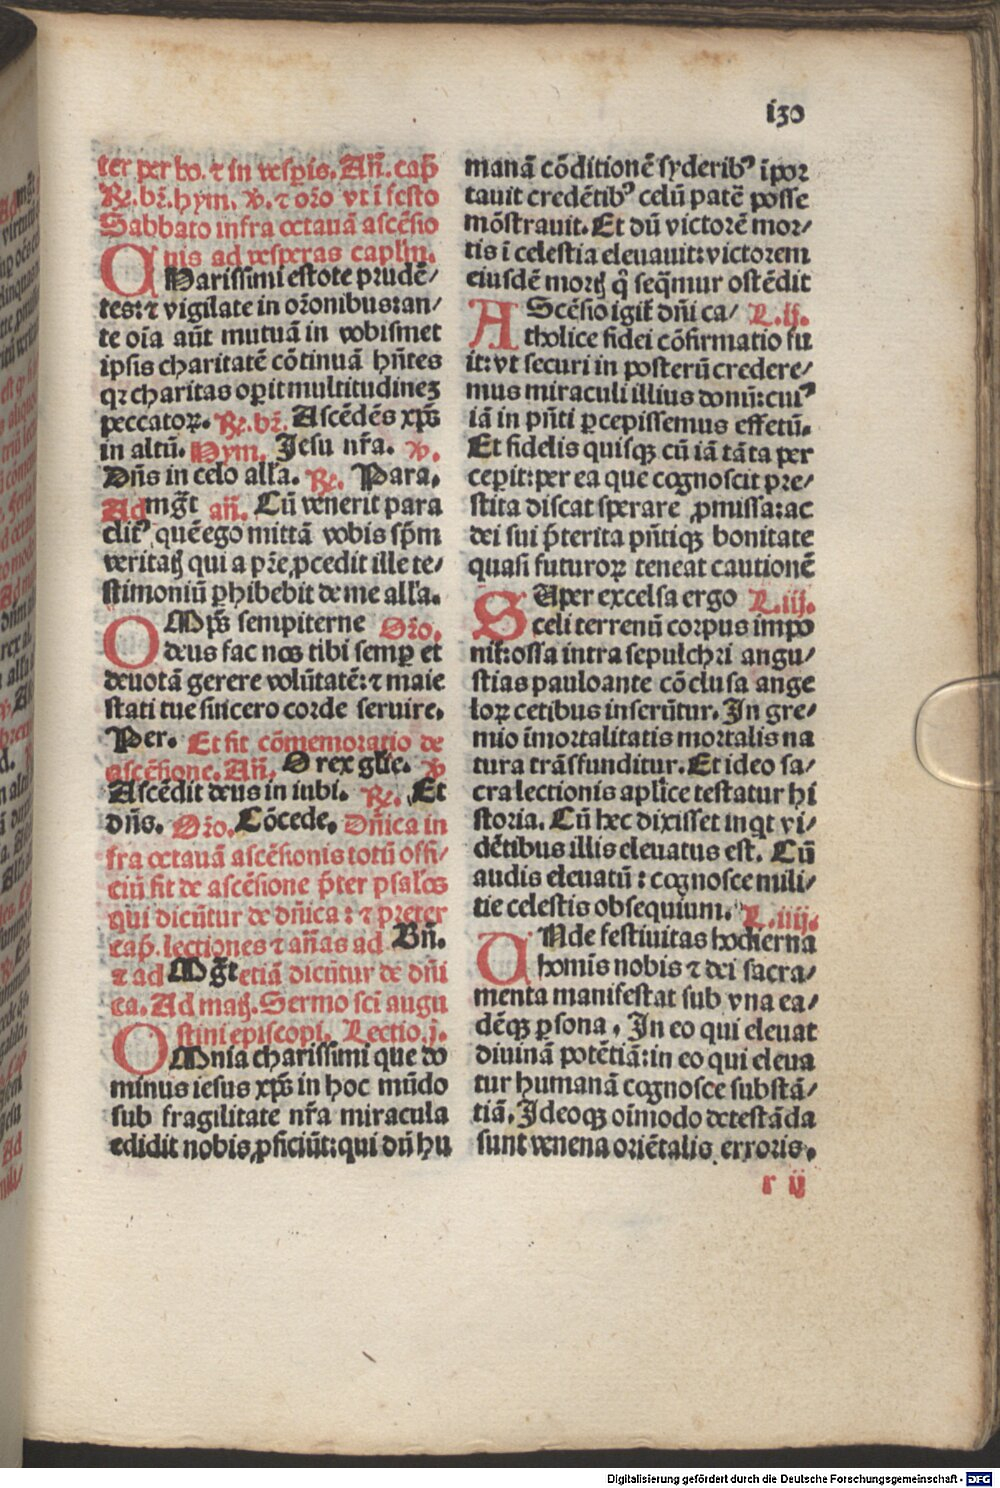 130
ter per ho. ⁊ in vesp̄is. Añ. cap̄
℞. br̄. hym. ℣. ⁊ or̄o vt ī festo
Sabbato infra octauā ascēsio
nis ad vesperas caplm̄.
CHarissimi estote prudē/
tes: ⁊ vigilate in or̄onibus: an/
te oīa aūt mutuā in vobismet
ipsis charitatē cōtinuā hn̄tes
qꝛ charitas oꝑit multitudineꝫ
peccatoꝝ. ℞. br̄. Ascēdēs xp̄s
in altū. Hym. Jesu nr̄a. ℣.
Dn̄s in celo alla. ℞. Para.
Ad mgt̄ añ. Cū venerit para
clitꝰ quē ego mittā vobis sp̄m
veritatꝭ qui a pr̄e ꝓcedit ille te/
stimoniū ꝑhibebit de me alla.
OMp̄s sempiterne Or̄o.
deus fac nos tibi semꝑ et
deuotā gerere volūtatē: ⁊ maie
stati tue sincero corde seruire.
Per. Et fit cōmemoratio de
ascēsione. Añ. O rex glīe. ℣
Ascēdit deus in iubi. ℞. Et
dn̄s. Or̄o. Cōcede. Dn̄ica in
fra octauā ascēsionis totū offi/
ciū fit de ascēsione p̄ter psalōs
qui dicūtur de dn̄ica: ⁊ preter
cap̄. lectiones ⁊ an̄as ad Bn̄.
⁊ ad Mgt̄ etiā dicūtur de dn̄i
ca. Ad matꝭ. Sermo scī augu
stini episcopi. Lectio. j.
OMnia charissimi que do
minus iesus xp̄s in hoc mūdo
sub fragilitate nr̄a miracula
edidit nobis ꝓficiūt: qui dū hu
manā cōditionē syderibꝰ īpor
tauit credētibꝰ celū patē posse
mōstrauit. Et dū victorē mor/
tis ī celestia eleuauit: victorem
eiusdē mortꝭ q̄ seq̄mur ostēdit
AScēsio igit̄ dn̄i ca/ L. ij.
tholice fidei cōfirmatio fu
it: vt securi in posterū credere/
mus miraculi illius donū: cuiꝰ
iā in pn̄ti ꝑcepissemus effetū.
Et fidelis quisqꝫ cū iā tāta per
ceperit: per ea que cognoscit pre/
stita discat sperare ꝓmissa: ac
dei sui p̄terita pn̄tiqꝫ bonitate
quasi futuroꝝ teneat cautionē
SUper excelsa ergo L. iij.
celi terrenū corpus impo
nit̄: ossa intra sepulchri angu/
stias pauloante cōclusa ange
loꝝ cetibus inserūtur. In gre/
mio īmortalitatis mortalis na
tura trāsfunditur. Et ideo sa/
cra lectionis aplīce testatur hi
storia. Cū hec dixisset inqt vi/
dētibus illis eleuatus est. Cū
audis eleuatū: cognosce mili/
tie celestis obsequium. L. iiij.
UNde festiuitas hodierna
homīs nobis ⁊ dei sacra/
menta manifestat sub vna ea/
dēqꝫ ꝑsona. In eo qui eleuat
diuinā potētiā: in eo qui eleua
tur humanā cognosce substā/
tiā. Ideoqꝫ oīmodo detestāda
sunt venena oriētalis erroris.
r ij
Digitalisierung gefördert durch die Deutsche Forschungsgemeinschaft - DFG